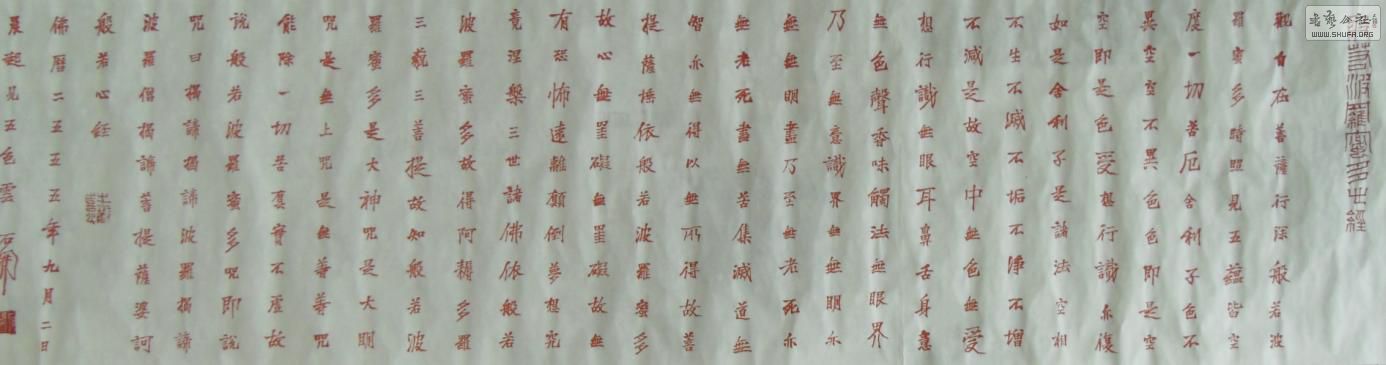 書藝公社
WWW.SHUFA.ORG
若波羅蜜多心經
觀自在菩薩行深般若波
羅蜜多時照見五蘊皆空
度一切苦厄舍利子色不
異空空不異色色即是空
空即是色受想行識亦復
如是舍利子是諸法空相
不生不滅不垢不淨不增
不減是故空中無色無受
想行識無眼耳鼻舌身意
無色聲香味觸法無眼界
乃至無意識界無無明亦
無無明盡乃至無老死亦
無老死盡無苦集滅道無
智亦無得以無所得故菩
提薩埵依般若波羅蜜多
故心無罣礙無罣礙故無
有恐怖遠離顛倒夢想究
竟涅槃三世諸佛依般若
波羅蜜多故得阿耨多羅
三藐三菩提故知般若波
羅蜜多是大神咒是大明
咒是無上咒是無等等咒
能除一切苦真實不虛故
說般若波羅蜜多咒即說
咒曰揭諦揭諦波羅揭諦
波羅僧揭諦菩提薩婆訶
般若心經
佛曆二五五五年九月二日
晨起見五色雲 石